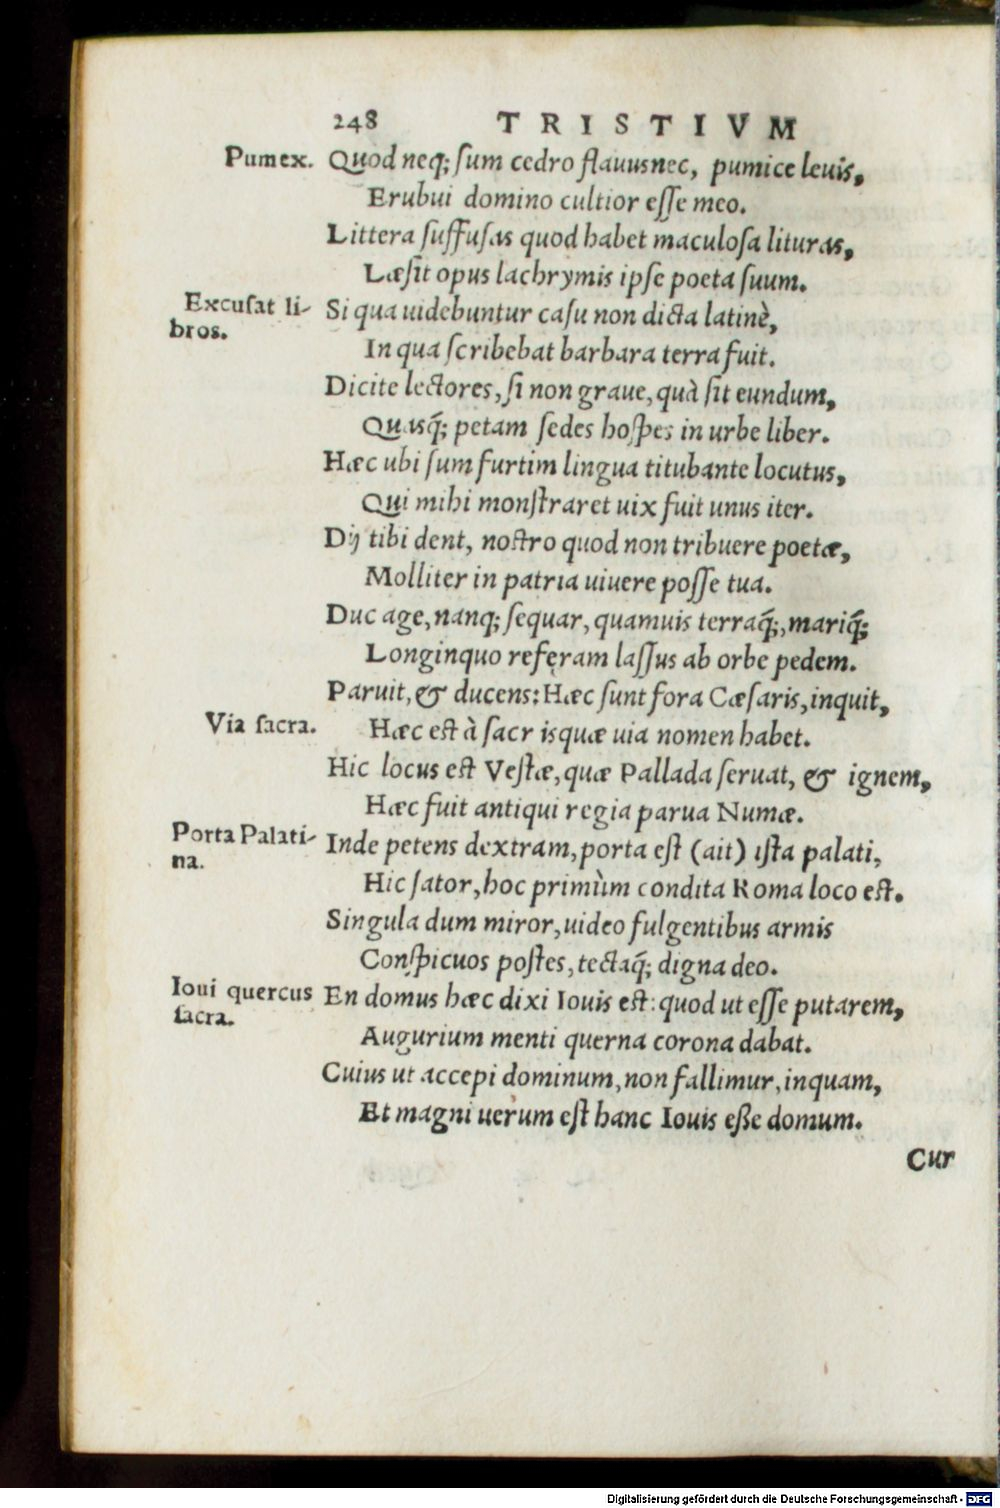 248 TRISTIVM
Pumex. Quod neq; ſum cedro flauusnec, pumice leuis,
Erubui domino cultior eſſe meo.
Littera ſuffuſas quod habet maculoſa lituras,
Læſit opus lachrymis ipſe poeta ſuum.
Excuſat li-
bros.
Si qua uidebuntur caſu non dicta latinè,
In qua ſcribebat barbara terra fuit.
Dicite lectores, ſi non graue, quà ſit eundum,
Quasq́; petam ſedes hoſpes in urbe liber.
Hæc ubi ſum furtim lingua titubante locutus,
Qui mihi monſtraret uix fuit unus iter.
Dij tibi dent, noſtro quod non tribuere poetæ,
Molliter in patria uiuere poſſe tua.
Duc age, nanq; ſequar, quamuis terraq́;, mariq́;
Longinquo referam laſſus ab orbe pedem.
Paruit, & ducens: Hæc ſunt fora Cæſaris, inquit,
Via ſacra. Hæc eſt à ſacr isquæ uia nomen habet.
Hic locus eſt Veſtæ, quæ Pallada ſeruat, & ignem,
Hæc fuit antiqui regia parua Numæ.
Porta Palati-
na.
Inde petens dextram, porta eſt (ait) iſta palati,
Hic ſator, hoc primùm condita Roma loco eſt.
Singula dum miror, uideo fulgentibus armis
Conſpicuos poſtes, tectaq́; digna deo.
Ioui quercus
ſacra.
En domus hæc dixi Iouis eſt: quod ut eſſe putarem,
Augurium menti querna corona dabat.
Cuius ut accepi dominum, non fallimur, inquam,
Et magni uerum eſt hanc Iouis eße domum.
Cur
Digitalisierung gefördert durch die Deutsche Forschungsgemeinschaft - DFG